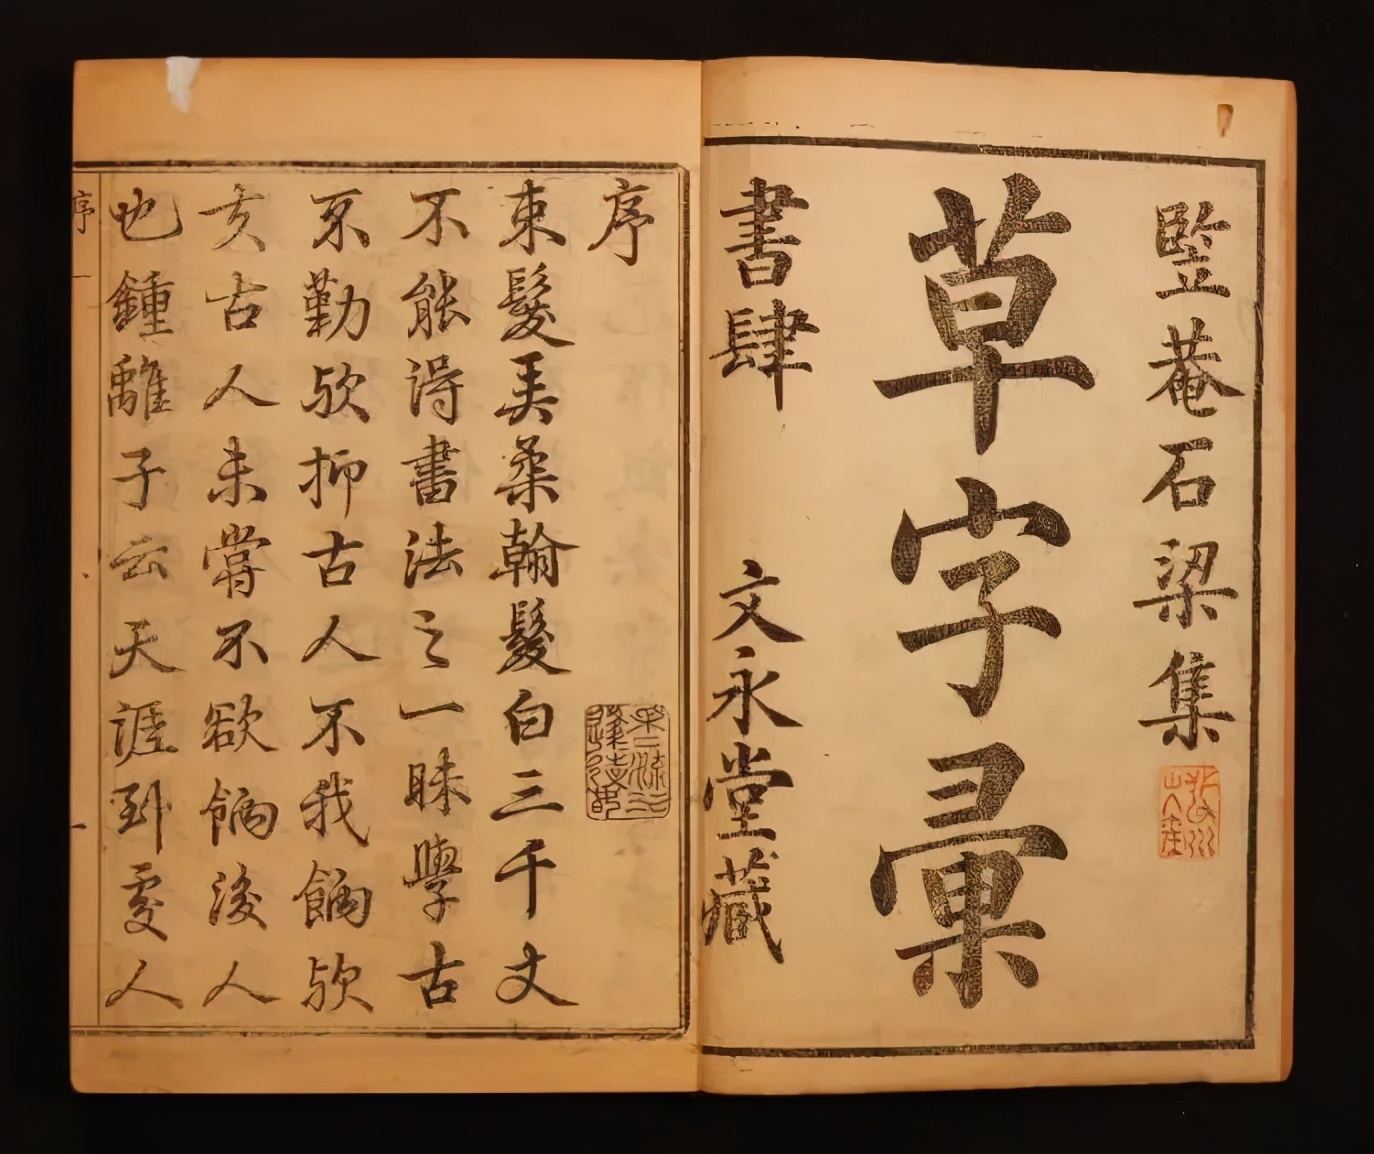 竪菴石梁集
草字彙
書肆 文永堂藏
序
束髮弄柔翰髮白三千丈
不能得書法之一昧學古
不勤欤抑古人不我餉欤
古人未嘗不欲餉後人
也鍾離子云天涯到處人
序 一